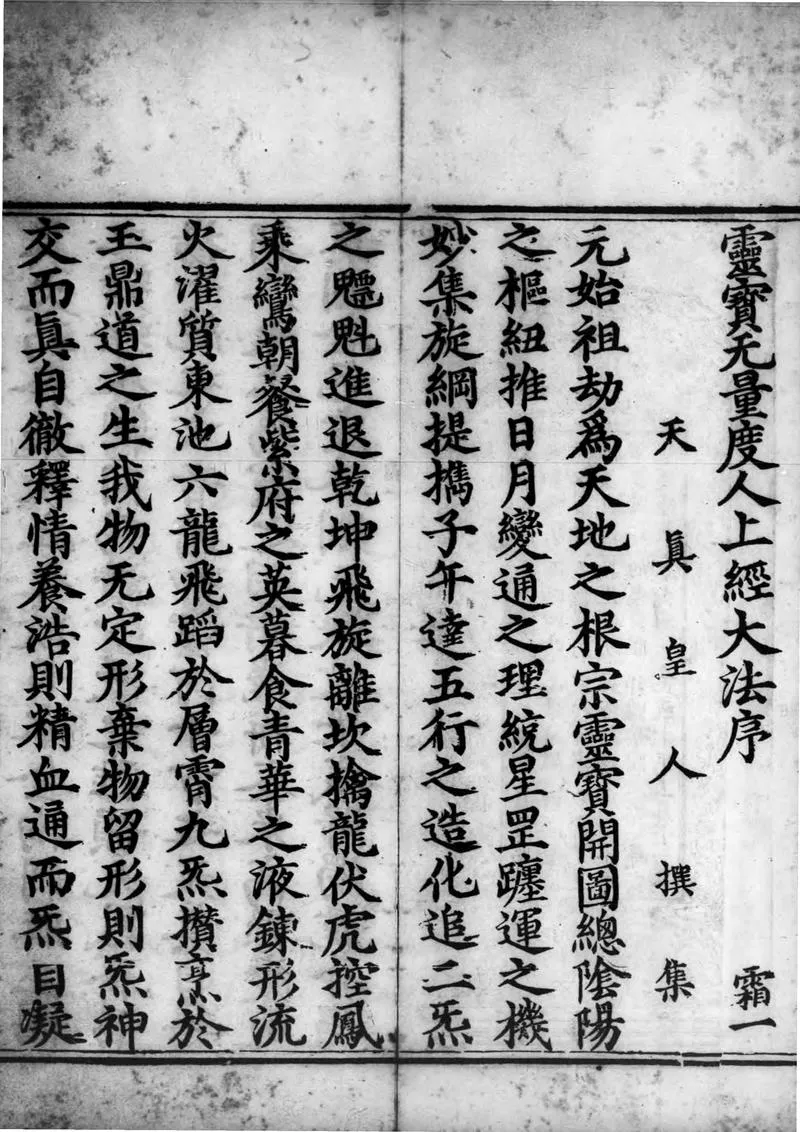 靈寶无量度人上經大法序 霜一
天真皇人撰集
元始祖劫爲天地之根宗靈寶開圖總陰陽
之樞紐推日月變通之理統星罡躔運之機
妙集旋綱提攜子午達五行之造化追二炁
之魒魁進退乾坤飛旋離坎擒龍伏虎控鳳
乘鸞朝餐紫府之英暮食青華之液鍊形流
火濯質東池六龍飛蹈於層霄九炁攅烹於
玉鼎道之生我物无定形棄物留形則炁神
交而眞自徹釋情養浩則精血通而炁自凝